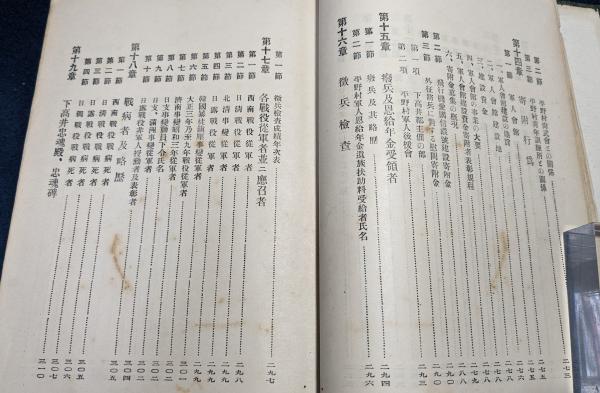 第二節 平野村尚武會との關係……二七三
第三節 平野村青年訓練所との關係……二七五
第十四章 寄附行爲……二七五
第一節 軍人會館……二七六
一、軍人會館建設地……二七七
三、建設資金……二七八
四、軍人會館の事業の大要……二七八
五、軍人會館建設資金寄附者表彰規程
六、寄附金募集の概況
第二節 飛行機愛國號建設寄附金
第三節 外征將兵に對する慰問寄附金
第一項 下高井郡主催の部……二九三
第二項 平野村軍人後援會
第十五章 癈兵及恩給年金受領者
第一節 癈兵及其略歷……二九四
第二節 平野村軍人恩給年金遺族扶助料受給者氏名……二九六
第十六章 徵兵檢查
第一節 徵兵檢查成績年次表……二九七
第十七章 各戰役從軍者並ニ應召者
第一節 西南戰役從軍者……二九八
第二節 日淸戰役從軍者……二九八
第三節 北淸事變從軍者……二九九
第四節 日露戰役從軍者……二九九
第五節 韓國暴徒鎭壓事變從軍者……二九九
第六節 大正三年乃至九年戰役從軍者……三〇一
第七節 濟南事變昭和三年從軍者
第八節 日支事變動員下令氏名
第九節 日支滿洲事變從軍者
第十節 日露戰役非軍人授勳者及表彰者……三〇四
第十八章 戰病者及略歷
第一節 西南戰役戰病死者……三〇五
第二節 日淸戰役戰病死者……三〇五
第三節 日露戰役戰病死者……三〇六
第四節 日獨戰役戰病死者……三〇七
第十九章 下高井忠魂殿、忠魂碑……三一〇